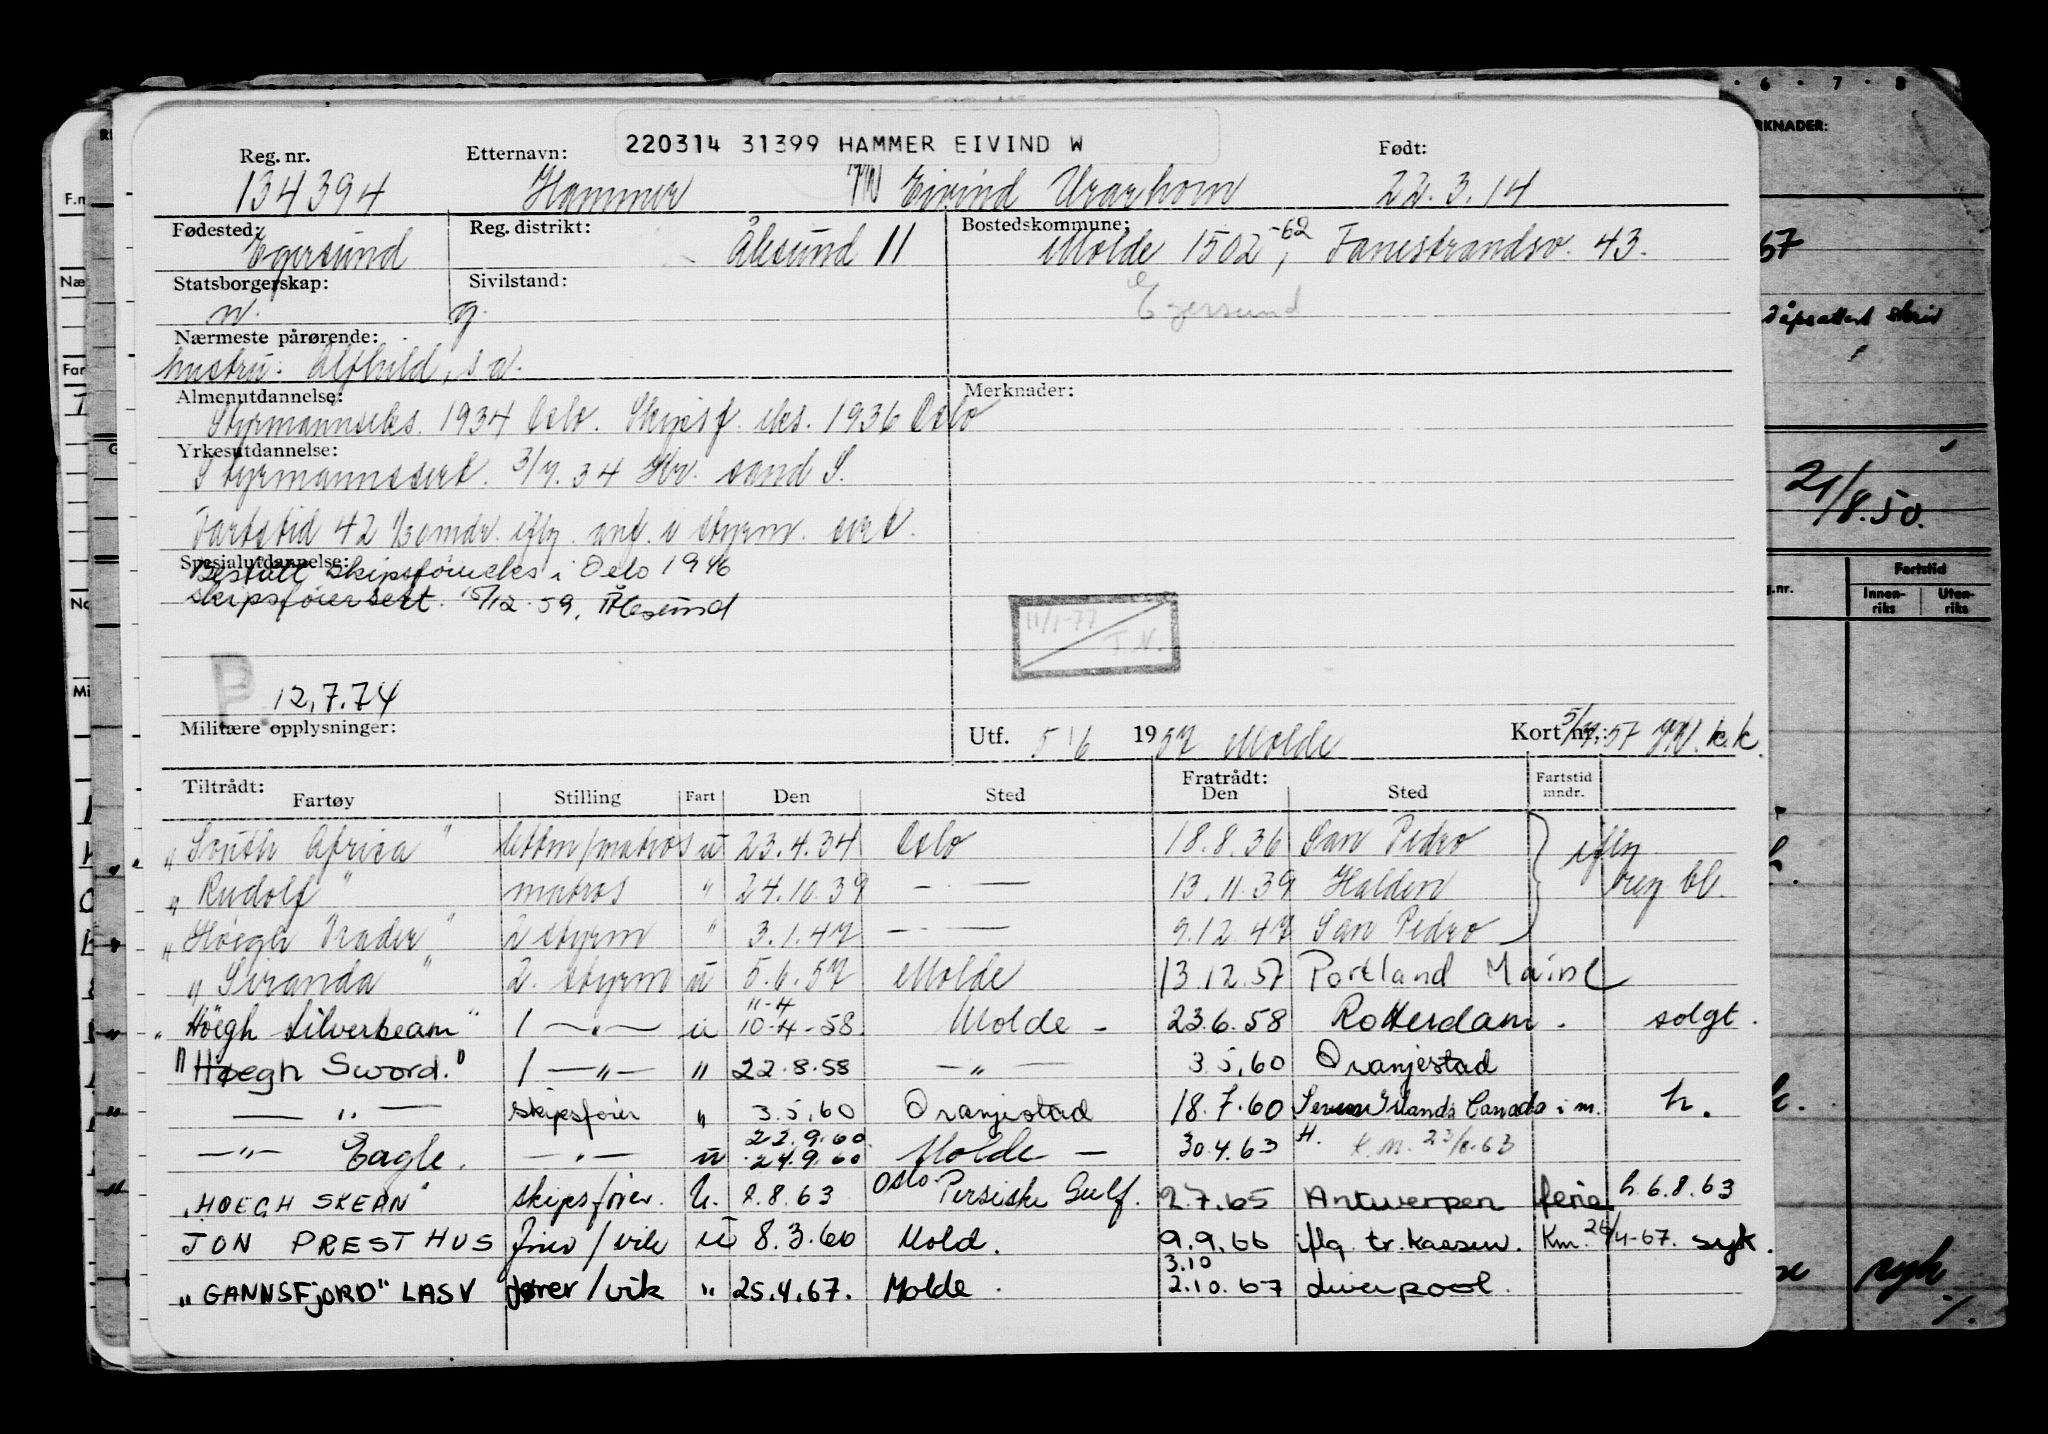 220314 31399 HAMMER EIVIND W
Reg. nr. Etternavn: Født:
134394 Hammer Eivind 22.3.14
Fødested: Reg. distrikt: Bostedskommune:
Egersund Ålesund 11 Molde 1502 -62, Fanestrandsv. 43.
Statsborgerskap: Sivilstand:
n. g. Egersund
Nærmeste pårørende:
hustru: Alfhild, s a.
Almenutdannelse: Merknader:
Styrmannseks. 1934 Oslo. Skipsf. eks. 1936 Oslo
Yrkesutdannelse:
Styrmannssert. 3/7.34 Kr. sand S.
Fartstid 42 mdr. iflg. anf. i styrm. sert.
Spesialutdannelse:
Bestått skipsførereks i Oslo 1946
skipsførersert. 15/12.59, Ålesund
11/1-77 T.N.
P. 12.7.74
Militære opplysninger: Utf. 5/6 1957 Molde Kort nr.: 5/7.57 k.k.
Tiltrådt: Fratrådt: Fartstid
Fartøy Stilling Fart Den Sted Den Sted mndr.
"South Africa" lettm/matros u 23.4.34 Oslo 18.8.36 San Pedro iflg
"Rudolf" matros " 24.10.39 — " — 13.11.39 Halden reg. bl.
"Høegh Trader" 2 styrm " 3.1.47 — " — 9.12.47 San Pedro
"Siranda" 2. styrm u 5.6.57 Molde 13.12.57 Portland Maine
11-4
"Höegh Silverbeam" 1 —"— u 10-4-58. Molde - 23.6.58 Rotterdam. solgt.
"Høegh Sword." 1 —"— " 22.8.58 —"— 3.5.60 Oranjestad
—"— skipsfører " 3.5.60 Oranjestad 18.7.60 Seven Islands Canada i m. h.
22.9.60
—"— Eagle. —"— u 24.9.60 Molde — 30.4.63 H. k.m. 23/8.63
"HOEGH SKEAN" skipsfører. U. 2.8.63 Oslo-Persiske Gulf. 2.7.65 Antwerpen ferie h. 6.8.63
JON PRESTHUS fører/vik u 8.3.66 Mold. 9.9.66 iflg. tr. kassen. Km. 26/4-67. syk.
3.10
"GANNSFJORD" LASV fører/vik " 25.4.67. Molde. 2.10.67 Liverpool.
6 7 8
RKNADER:
67
Dåpsattest skriv
21/8.50.
g.nr. Fartstid
Innenriks Utenriks
syk